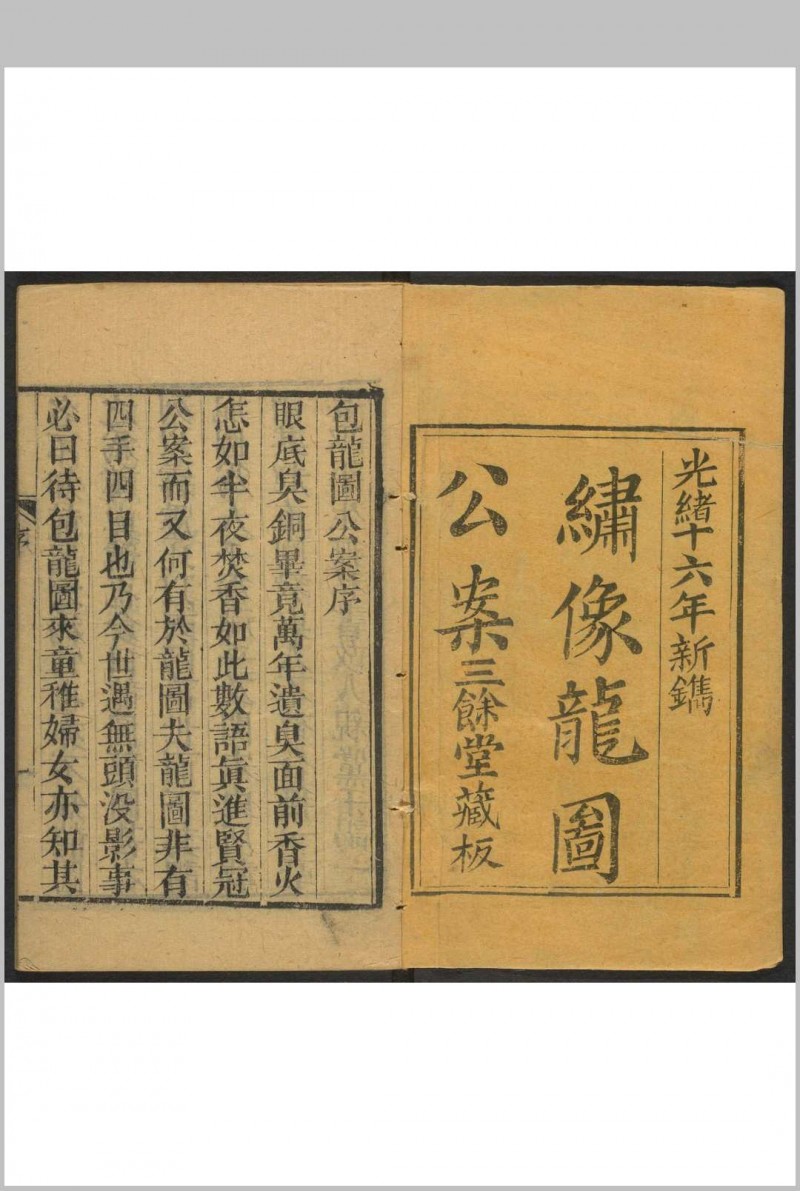 光緒十六年新鐫
繡像龍圖
公案三餘堂藏板
包龍圖公案序
眼底臭銅畢竟萬年遺臭面前香火
怎如半夜焚香如此數語眞進賢冠
公案而又何有於龍圖夫龍圖非有
四手四目也乃今世遇無頭没影事
必曰待包龍圖來童稚婦女亦知其
序